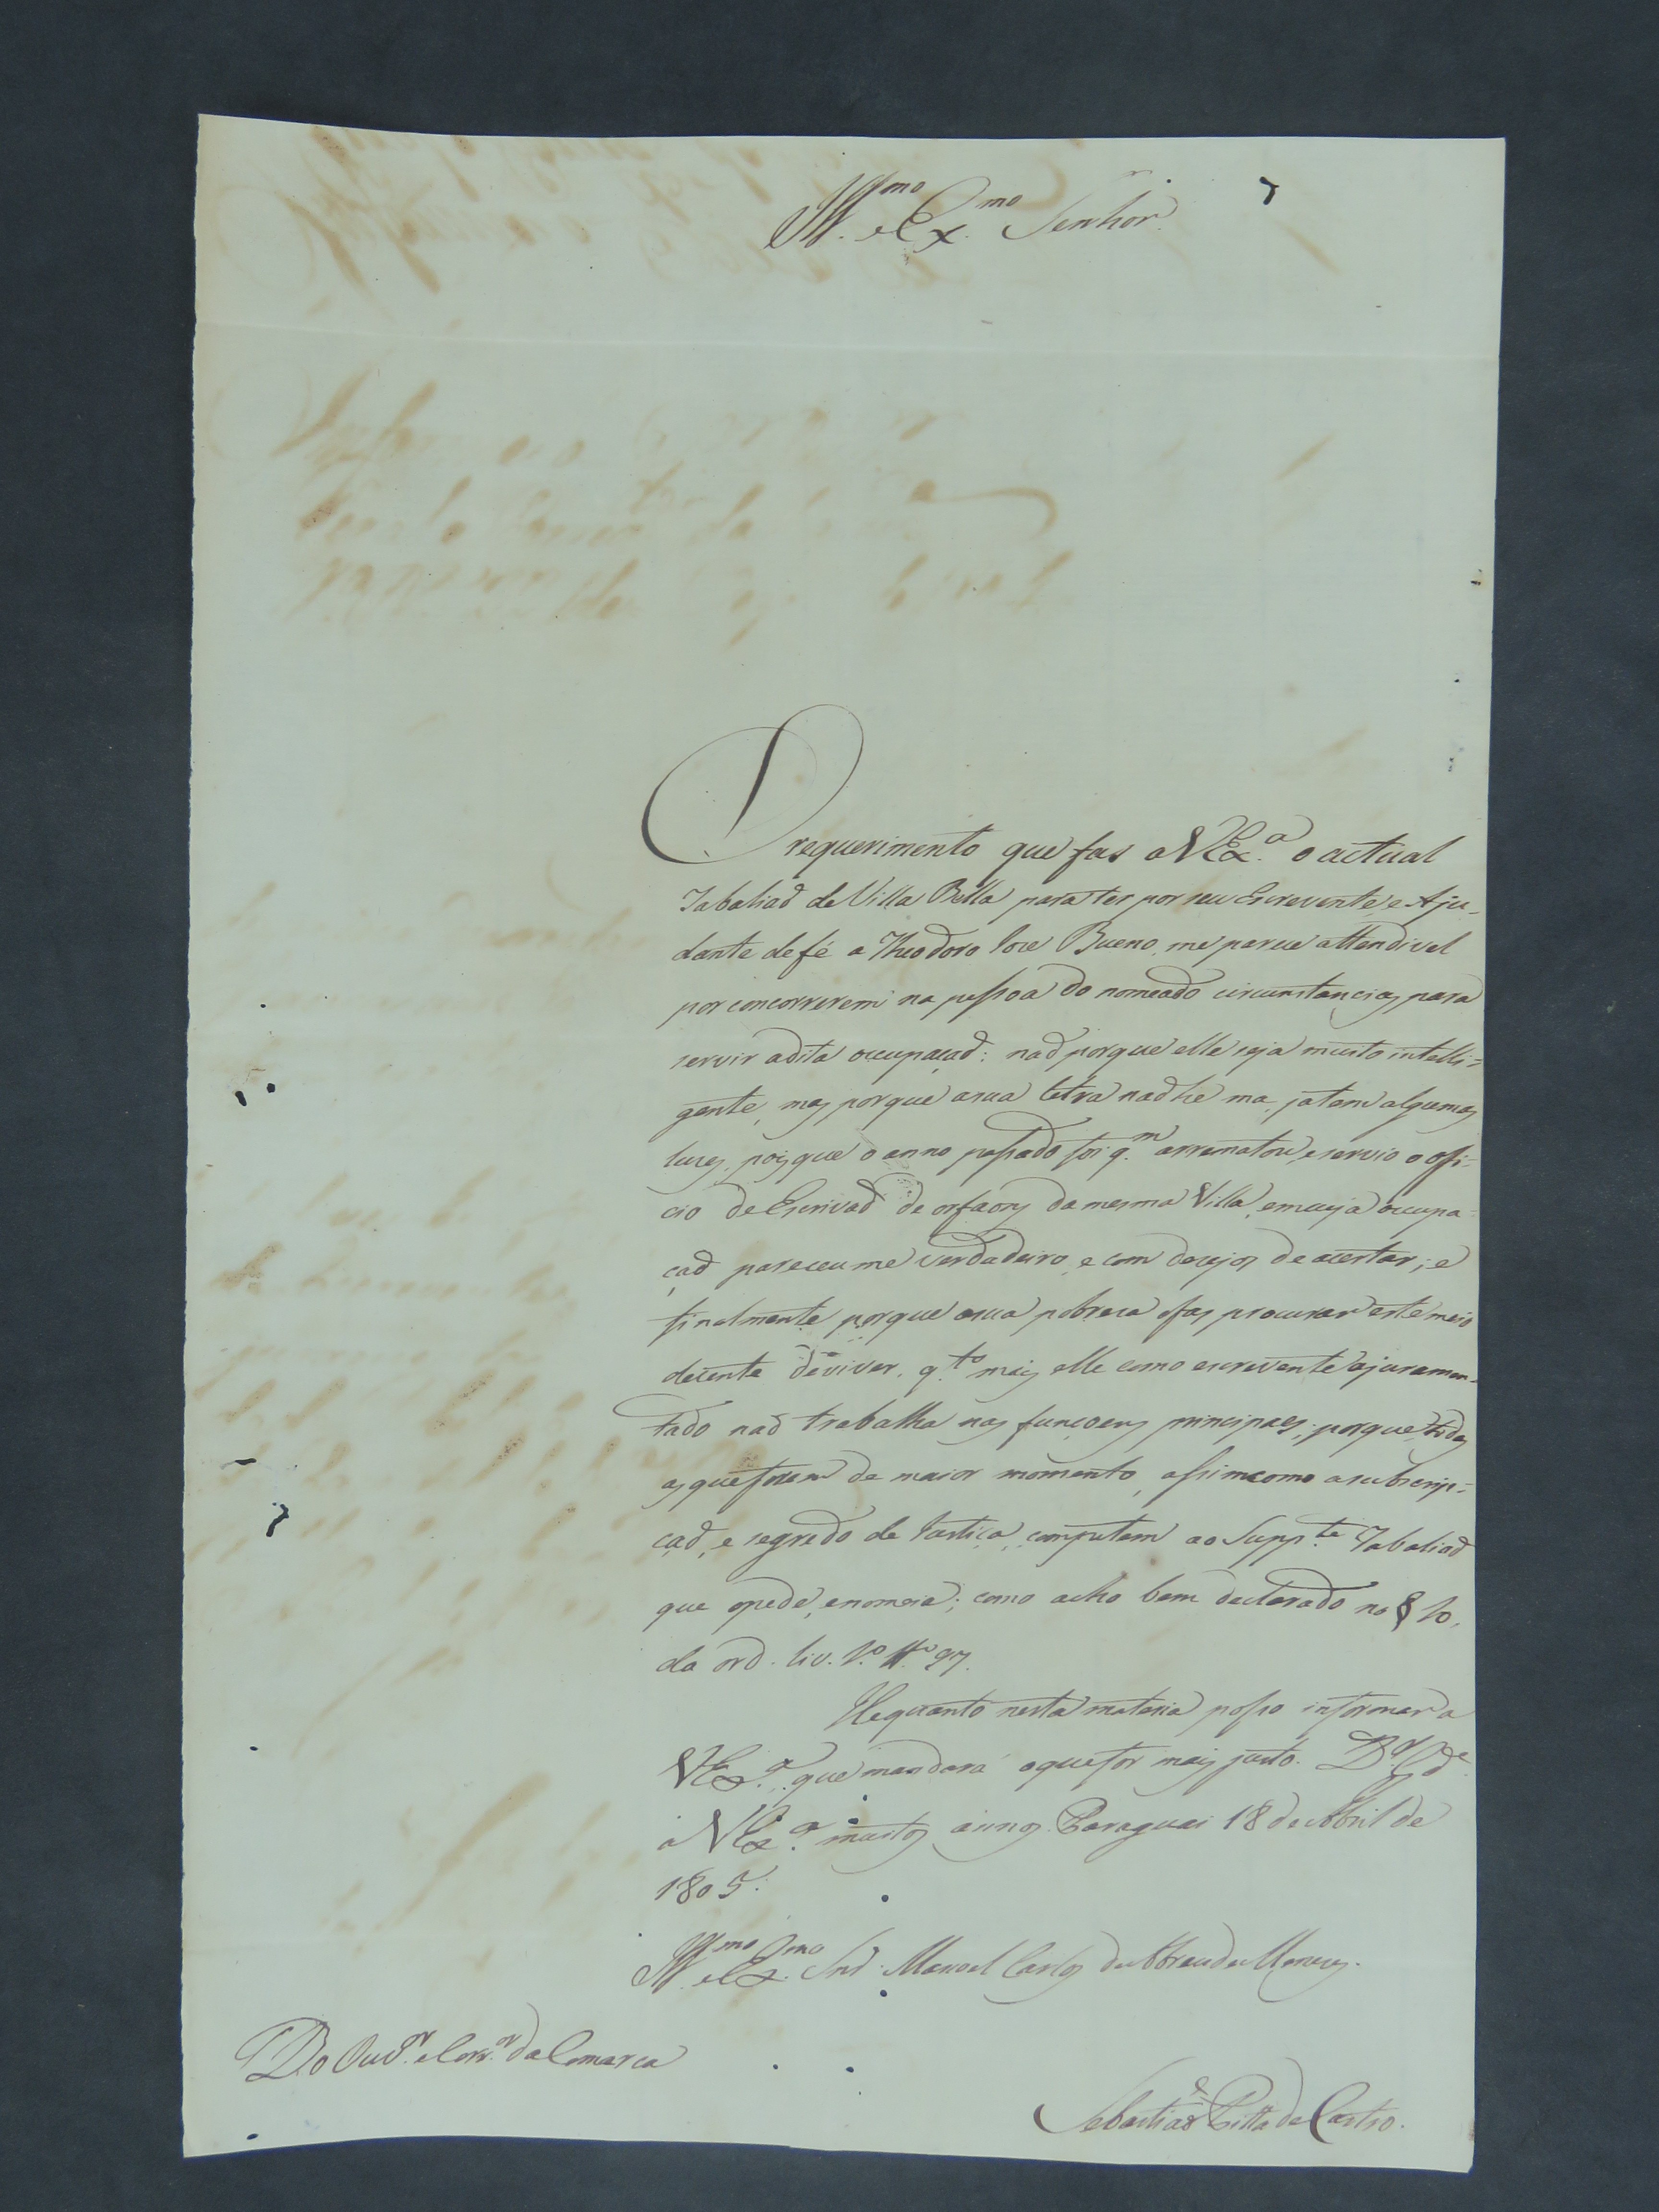 Ill.mo e Ex.mo Senhor
O requerimento que fas a V Ex.a o actual
Tabaliaõ de Villa Bella para ter por seu Escrevente, e Aju-
dante de fé a Theodoro Joze Bueno, me parece attendivel
por concorrerem na pessoa do nomeado circunstancias para
servir a dita occupaçaõ: naõ porque elle seja muito intelli=
gente, mas porque a sua letra naõ he ma, ja tem algumas
luzes, pois que o anno passado foi q.m arrematou, e servio o offi=
cio de Escrivaõ de orfaons da mesma Villa, em cuja occupa-
çaõ pareceu me verdadeiro, e com dezejos de acertar; e
finalmente porque a sua pobreza o fas procurar este meio
decente de viver. q.to mais elle como escrevente ajuramen-
tado naõ trabalha nas funçoens principaes; porque todas
as que forem de maior momento, assim como a subscrip=
çaõ, e segredo de Justiça, competem ao Supp.te Tabaliaõ
que o pede, e nomeia; como acho bem declarado no § 10,
da Ord. liv. 1.º tt.º 97.
He quanto nesta materia posso informar a
V Ex.a que mandará o que for mais justo. D.s G.de
a V Ex.a muitos annos Paraguai 18 de Abril de
1805.
Ill.mo e Ex.mo Snr. Manoel Carlos de Abreu de Menezes.
Do Ouv.or e Corr.or da Comarca
Sebastiaõ Pitta de Castro.